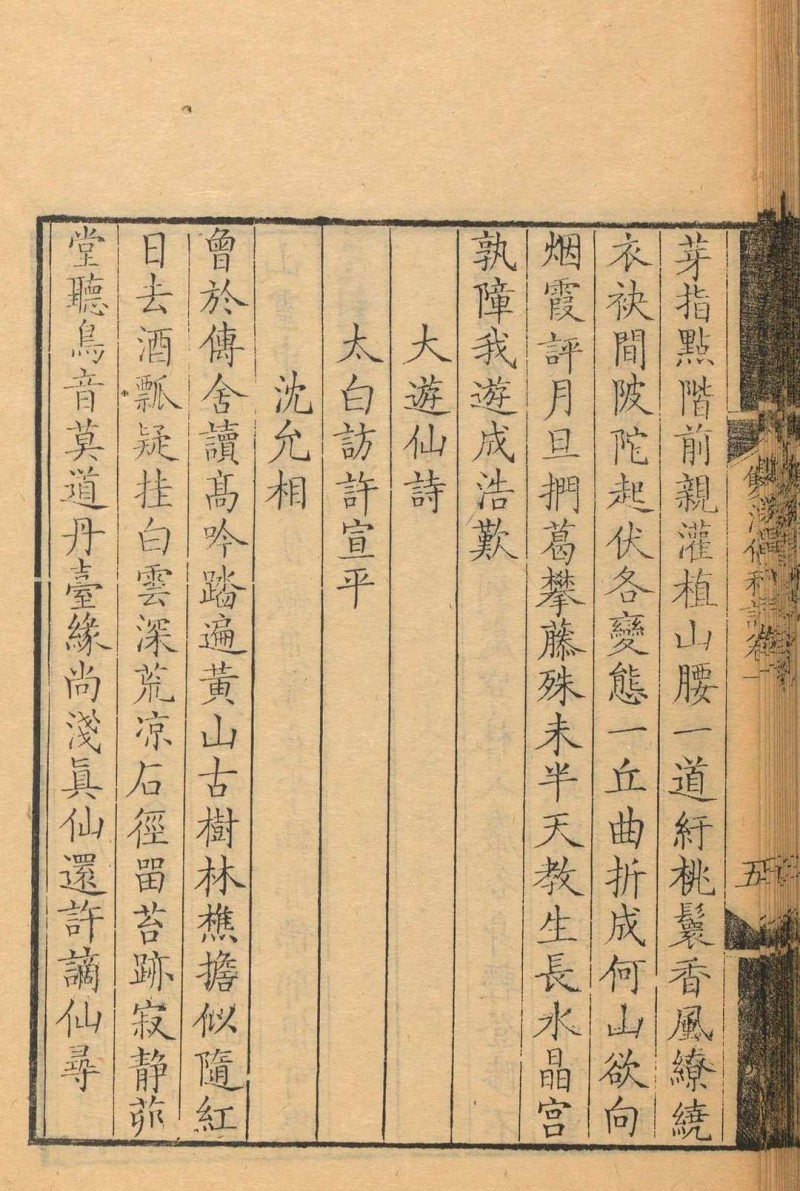 芽指點階前親灌植山腰一道紆桃鬟香風繚繞
衣袂間陂陀起伏各變態一丘曲折成何山欲向
烟霞評月旦捫葛攀藤殊未半天教生長水晶宮
孰障我遊成浩歎
大遊仙詩
太白訪許宣平
沈允相
曾於傳舍讀髙吟踏遍黃山古樹林樵擔似隨紅
日去酒瓢疑挂白雲深荒凉石徑畱苔跡寂静茆
堂聽鳥音莫道丹臺緣尚淺眞仙還許謫仙尋
五